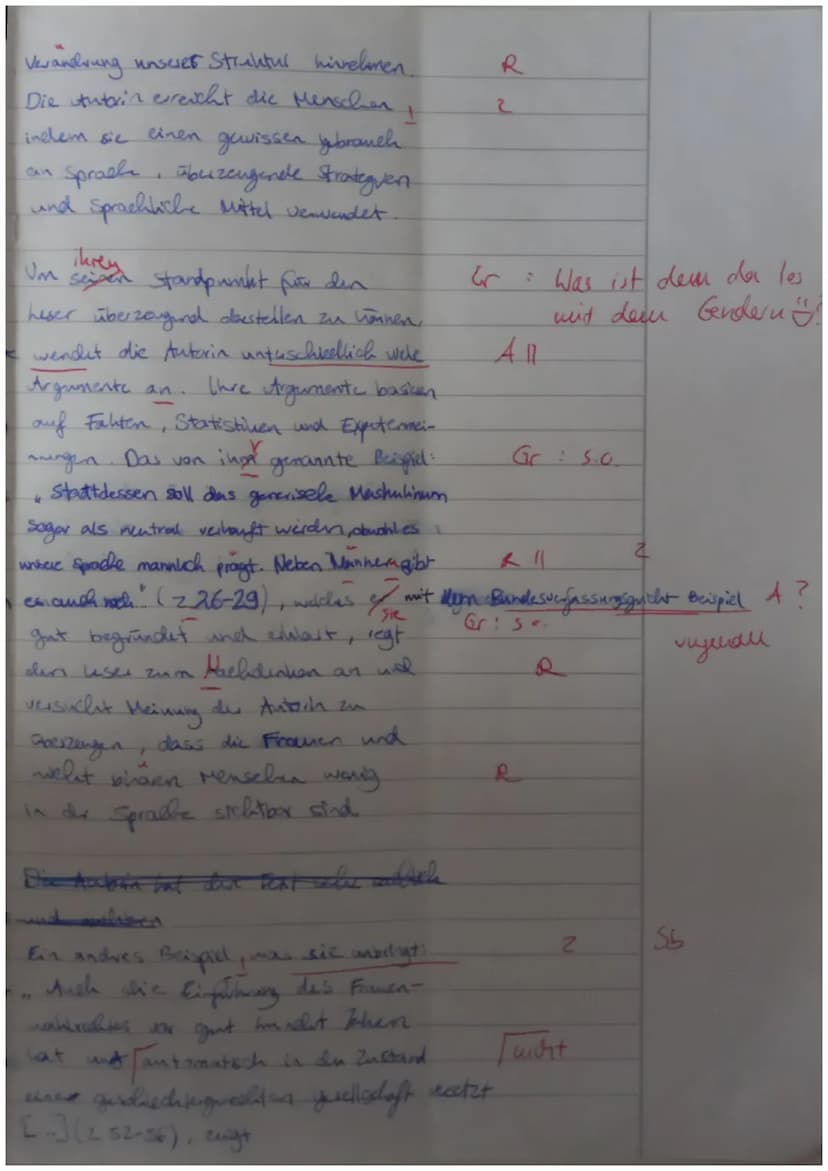 Verändrung unserer Struktur hinnehmen. R
Die Autorin erreicht die Menschen, Z
indem sie einen gewissen gebrauch
an Sprache, überzeugende Strategien
und Sprachliche Mittel verwendet.
ihren
Um seinen Standpunkt für den Gr : Was ist denn da los
Leser überzeugend darstellen zu können, mit dem Gendern
wendet die Autorin unterschiedlich viele A ||
Argumente an. Ihre Argumente basieren
auf Fakten, Statistiken und Expertenmei-
nungen. Das von ihr genannte Beispiel: Gr : s.o.
"Stattdessen soll das generische Maskulinum
sogar als neutral verkauft werden, obwohl es
unsere Sprache männlich prägt. Neben Männern gibt R || Z
es auch noch" (Z 26-29), welches er mit dem Bundesverfassungsgericht Beispiel A ?
sie Gr : s.o.
gut begründet und erklärt, regt
den Leser zum Nachdenken an und R
versucht Meinung der Autorin zu
überzeugen, dass die Frauen und
nicht binären Menschen wenig R
in der Sprache sichtbar sind
Die Autorin hat den Text sehr
und
Ein andres Beispiel, was sie Z Sb
"Auch die Einführung des Frauen-
wahlrechtes vor gut hundert Jahren
hat uns automatisch in den Zustand nicht
einer geschlechtergerechten gesellschaft versetzt
[...] (Z 52-56), zeigt